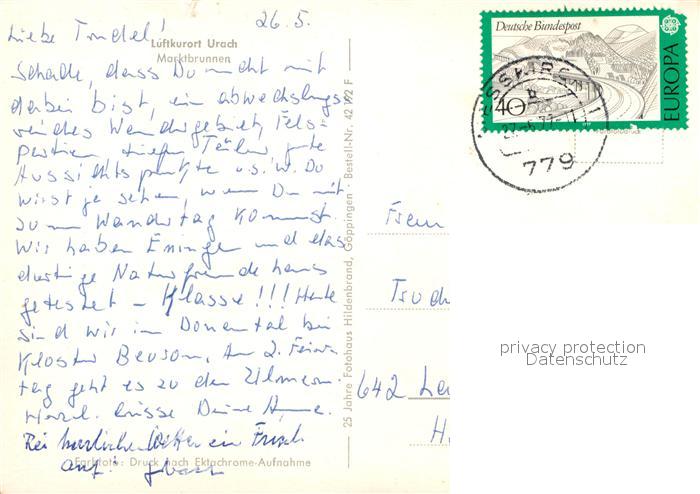 26. 5.
Liebe Trudel!
Luftkurort Urach
Marktbrunnen
Schade, dass Du nicht mit
dabei bist, ein abwechslungs
reiches Wandergebiet, Fels-
partien tiefen Täler, gute
Aussichtspunkte u.s.w. Du
wirst ja sehen, wenn Du mit
zum Wandertag kommst.
Wir haben Eningen und das
dortige Naturfreundehaus
getestet - Klasse!!! Heute
sind wir im Donautal bei
Kloster Beuron, Am 2. Feier
tag geht es zu den Ulmern.
Herzl. Grüsse Deine
Bei herrlichem Wetter ein Frisch
auf!
Farbfoto: Druck nach Ektachrome-Aufnahme
25 Jahre Fotohaus Hildenbrand, Göppingen Bestell-Nr. 42 192 F
Deutsche Bundespost
40
EUROPA
779
Frau
Trud
642
privacy protection
Datenschutz